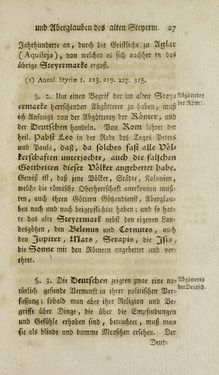 und Aberglauben des alten Steyerm. 27
Jahrhunderte an, durch die Geistliche zu Aglar
(Aquileja), von welchen es sich nachher in das
übrige Steyermark ergoß.
(2) Annal. Styriæ 1. 213. 219. 227. 315.
§. 2. Um einen Begriff der im alten Steyer-
marke herschenden Abgötterey zu haben, muß
ich Anfangs von der Abgötterey der Römer, und
der Deutschen handeln. Von Rom lehrt der
heil. Pabst Leo in der Rede des Tages Peters
und Pauls, daß, da solches fast alle Völ-
kerschaften unterjochte, auch die falschen
Gottheiten dieser Völker angebethet habe.
Gewiß ist, daß jene Völker, Städte, Kolonien,
welche die römische Oberherrschaft anerkennen muß-
ten, auch ihren Göttern Götzendienst, Aberglau-
ben nach und nach beygepflichtet haben; und so hat-
te das alte Steyermark nebst den eigenen Lan-
desgöthen, den Belenus und Cornutes, auch
den Jupiter, Mars, Serapis, die Isis,
die Sonne mit den Römern verehret.
Abgötterey
der Römer.
§. 3. Die Deutschen zeigten zwar eine na-
türlich gesunde Vernunft in ihrer politischen Verfas-
sung: betrachtet man aber ihre Religion und Be-
griffe von der Gottheit, die über die Empfindungen
und Gefühle erhaben sind, betrachtet, muß man
sie als blinde und dumme Menschen ersehen. Der
Abgötterey
der Deutsch.
Deut-